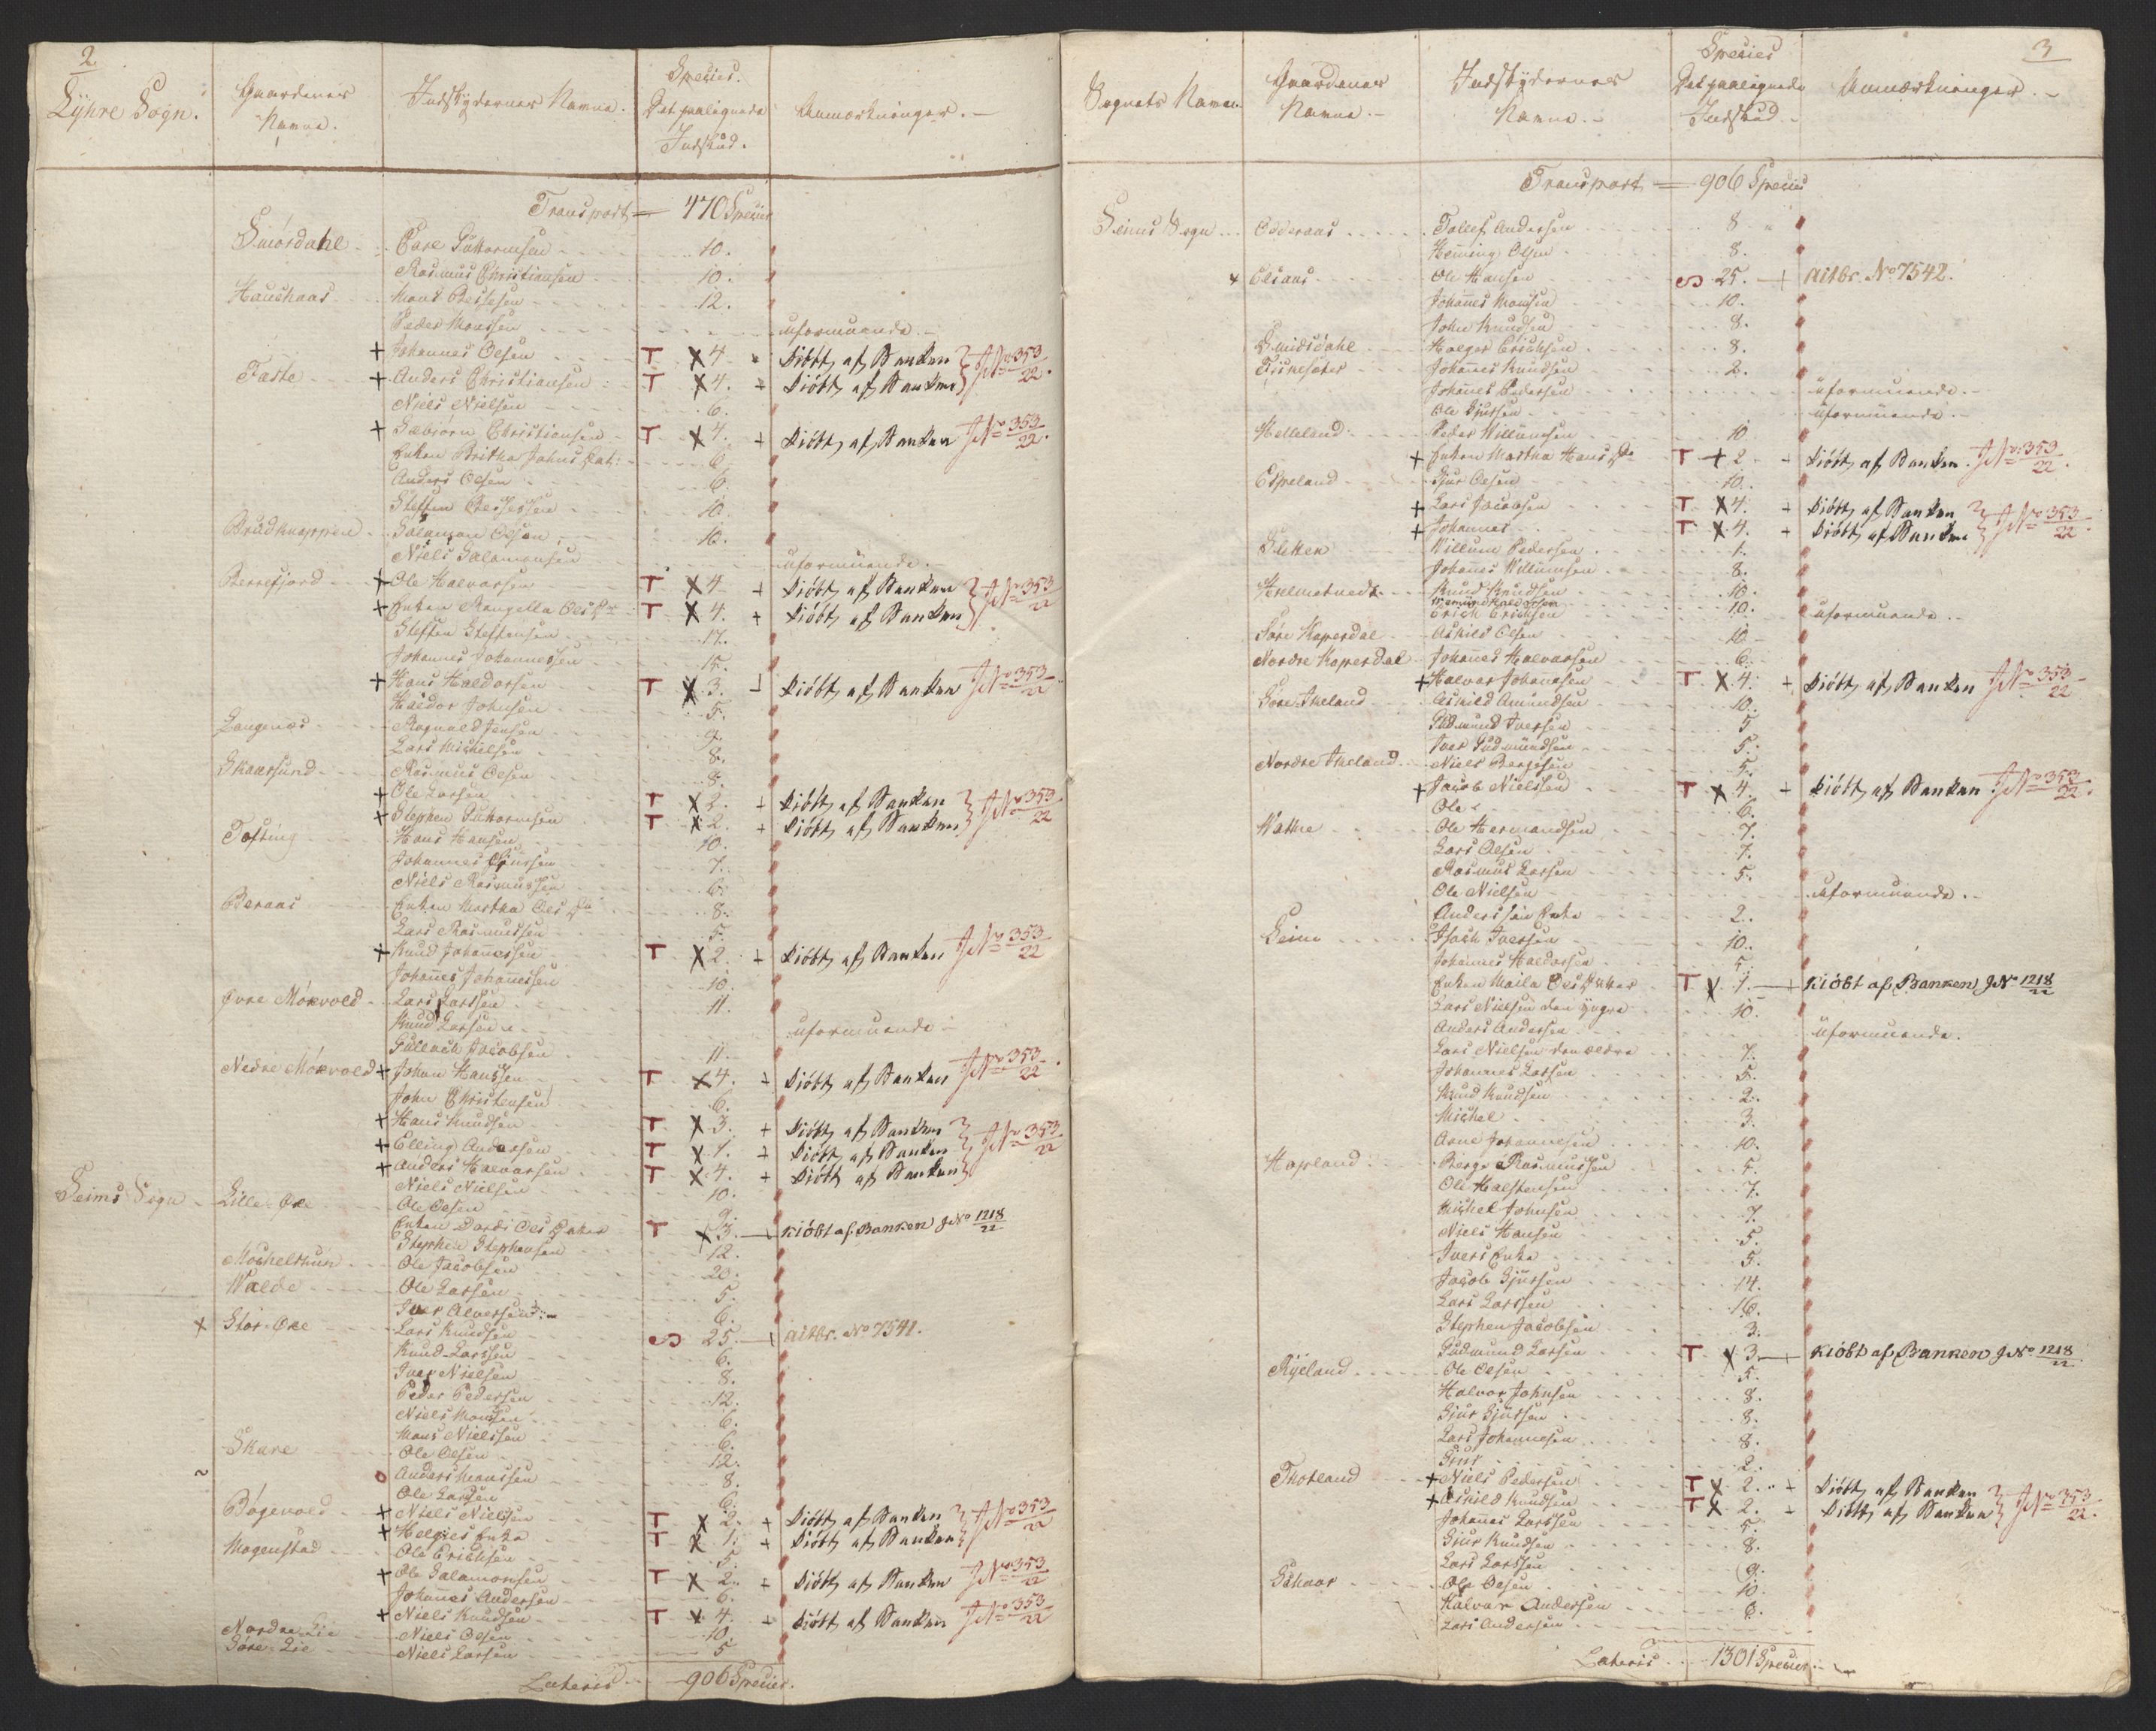 2
Lyhre Sogn.
Gaardenes Navne.
Indskydernes Navne.
Species. Det paalignede Indskud.
Anmærkninger.
Transport = 470 Species
Smördahl Peder Guttormsen 10.
Rasmus Christiansen 10.
Haushaas Mons 12.
Peder Monsen uformuende.
+ Johannes Olsen T X 4 + kiöbt af Banken } JNo 353/22.
Faste + Anders Christiansen T X 4. + kiöbt af Banken
Niels Nielsen 6.
+ Christiansen T X 4. + kiöbt af Banken JNo 353/22.
Enken Britha Johns Dat: 6.
Anders Olsen 6.
Steffen 10.
Brudknappen Salamon Olsen 10.
Niels Salamonsen uformuende.
Bernefjord + Ole Halvorsen T X 4 + kiöbt af Banken } JNo 353/22
+ Enken Rangella Oles Dr T X 4. + kiöbt af Banken
Steffen Steffensen 17.
Johannes Johannessen 15.
+ Hans Haldorsen T X 3. + kiöbt af Banken JNo 353/22
Haldor Johnsen 5.
Langenes Rognald Jensen 9.
Lars Michelsen 8.
Skaarsund Rasmus Olsen 8.
+ Ole Larsen T X 2. + kiöbt af Banken } JNo 353/22
+ Stephen Guttormsen T X 2. + kiöbt af Banken
Tofting Hans Hansen 10.
Johannes 7.
Niels Rasmussen 6.
Beraas Enken Martha Oles Dr 8.
Lars Rasmussen 5.
+ Knud Johannessen T X 2. + kiöbt af Banken JNo 353/22
Johannes Johannessen 10.
Øvre Mörvold Lars Larssen 11.
Knud Larsen uformuende
Gullach Jacobsen 11.
Nedre Mörvold + Johan Hanssen T X 4. + kiöbt af Banken JNo 353/22
John Christensen 6.
+ Hans Knudsen T X 3. + kiöbt af Banken } JNo 353/22
+ Elling Andersen T X 1. + kiöbt af Banken
+ Anders Halvorsen T X 4. + kiöbt af Banken
Niels Nielsen 10.
Seims Sogn Lille-Oxe Ole Olsen 9.
Enken Dordi Oles Dater T X 3. + kiöbt af Banken JNo 1218/22
Stephen Stephansen 12.
Moshelthun Ole Jacobsen 20.
Walde Ole Larsen 5.
Iver 6.
X Stor-Oxe Lars Knudsen 25. + actbr. No 7541.
Knud Larssen 6.
Iver Nielsen 8.
Peder Pedersen 12.
Niels Monsen 6.
Mons Nielssen 6.
Skare Ole Olsen 12.
Anders Monssen 8.
Ole Larsen 6.
Bögevold + Niels Nielsen T X 2. + kiöbt af Banken } JNo 353/22
+ Helgies Enke T X 1. + kiöbt af Banken
Mogenstad Ole Erichsen 5.
+ Ole Salamonsen T X 2. + kiöbt af Banken JNo 353/22
Johannes Andersen 6.
+ Niels Knudsen T X 4. + kiöbt af Banken JNo 353/22
Nordre Lie Niels Olsen 10.
Søre Lie Niels Larsen 5
Lateris 906 Species.
3
Sognets Navn.
Gaardenes Navne.
Indskydernes Navne.
Species Det paalignede Indskud
Anmærkninger.
Transport = 906 Species
Seims Sogn Odderaas Tollef Andersen 8
Heming Olsen 8.
Elsaas Ole Hansen 25. + actbr. No 7542.
Johannes Monsen 10.
John Knudsen 8.
Smidsdahl Holger Erichsen 8.
Fiskesæter Johannes Knudsen 2.
Johannes Pedersen uformuende.
Ole uformuende.
Helleland Peder Willumsen 10
+ Enken Martha Hans Dr T + 2 + kiöbt af Banken. JNo 353/22.
Espeland Siur Olsen 10.
+ Lars Jacobsen T X 4. + kiöbt af Banken } JNo 353/22
+ Johannes T X 4. + kiöbt af Banken
Sletten Willum Pedersen 1.
Johannes Willumsen 8.
Holmetvedt Knud Knudsen 10.
Erich Erichsen 10. uformuende.
Søre Koperdal Aschild Olsen 10
Nordre Koperdal Johannes Halvorsen 6.
+ Halvor Johansen T X 4. + kiöbt af Banken JNo 353/22
Søre-Theland Aschild Amundsen 10.
Gudmund Iversen 5
Iver Gudmundsen 5.
Nordre Theland Niels 5.
+ Jacob Nielsen T X 4. + kiöbt af Banken JNo 353/22.
Ole 6.
Watne Ole Hermandsen 7.
Lars Olsen 7.
Rasmus Larsen 5.
Ole Nielsen uformuende.
Anders Enke 2.
Seim Isach Iversen 10.
Johannes Haldorsen 5.
Enken Maila Oles Dater T X 1. + kiöbt af Banken JNo 1218/22
Lars Nielsen den yngre 10.
Anders Andersen uformuende.
Lars Nielsen den ældre 7.
Johannes Larsen 5.
Knud Knudsen 2.
Michel 3.
Arne Johannesen 10.
Hopland Børge Rasmussen 5.
Ole Halstensen 7.
Michel Johnsen 7.
Niels Hansen 5.
Ivers Enke 5.
Jacob 14.
Lars Larssen 16.
Stephen Jacobsen 3.
Gudmund Larsen T X 3. + kiöbt af Banken JNo 1218/22
Ryeland Ole Olsen 5.
Halvor Johnsen 8.
Siur Siursen 8.
Lars Johannesen 8.
Siur 2.
Thotland + Niels Pedersen T X 2. + kiöbt af Banken } JNo 353/22.
+ Aschild Knudsen T X 2. + kiöbt af Banken
Johannes Larssen 5.
Siur Knudsen 8.
Lars Larssen 9.
Ole Olsen 10.
Halvor Andersen 6.
Lars Andersen
Lateris 1301 Species.